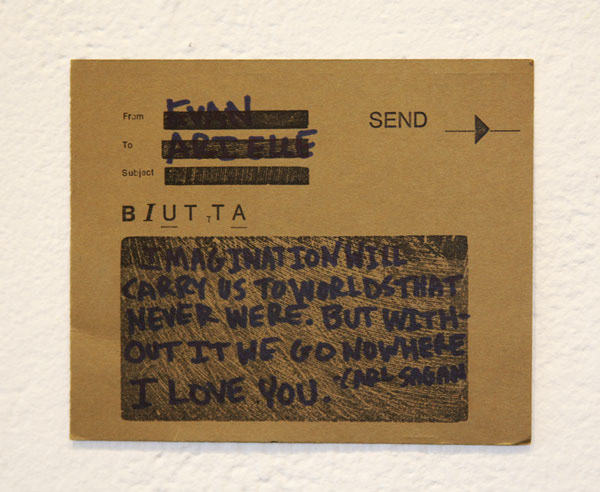 From EVAN
SEND
To ARIELLE
Subject
B I U T T T A
IMAGINATION WILL
CARRY US TO WORLDS THAT
NEVER WERE. BUT WITH-
OUT IT WE GO NOWHERE
I LOVE YOU. -CARL SAGAN